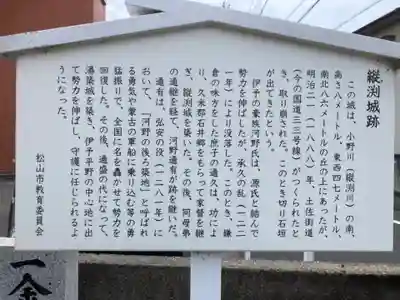 縦渕城跡
この城は、小野川(縦渕川)の南、
高さ八メートル、東西四七メートル、
南北八六メートルの丘の上にあったが、
明治二一(一八八八)年、土佐街道
(今の国道三三号線)がつくられたと
き、取り崩された。このとき切り石垣
が出てきたという。
伊予の豪族河野氏は、源氏と結んで
勢力を伸ばしたが、承久の乱(一二二
一年)により没落した。このとき、鎌
倉の味方をした庶子の通久は、功によ
り、久米郡石井郷をもらって家督を継
ぎ、縦渕城を築いた。その後、同母弟
の通継を経て、河野通有が跡を継いだ。
通有は、弘安の役(一二八一年)に
おいて、「河野の後ろ築地」と呼ばれ
る勇気や蒙古の軍船に乗り込む等の勇
猛振りで、全国に名を轟かせて勢力を
回復した。その後、通盛の代になって、
湯築城を築き、伊予平野の中心地に出
て勢力を伸ばし、守護に任じられるよ
うになった。
松山市教育委員会
一金